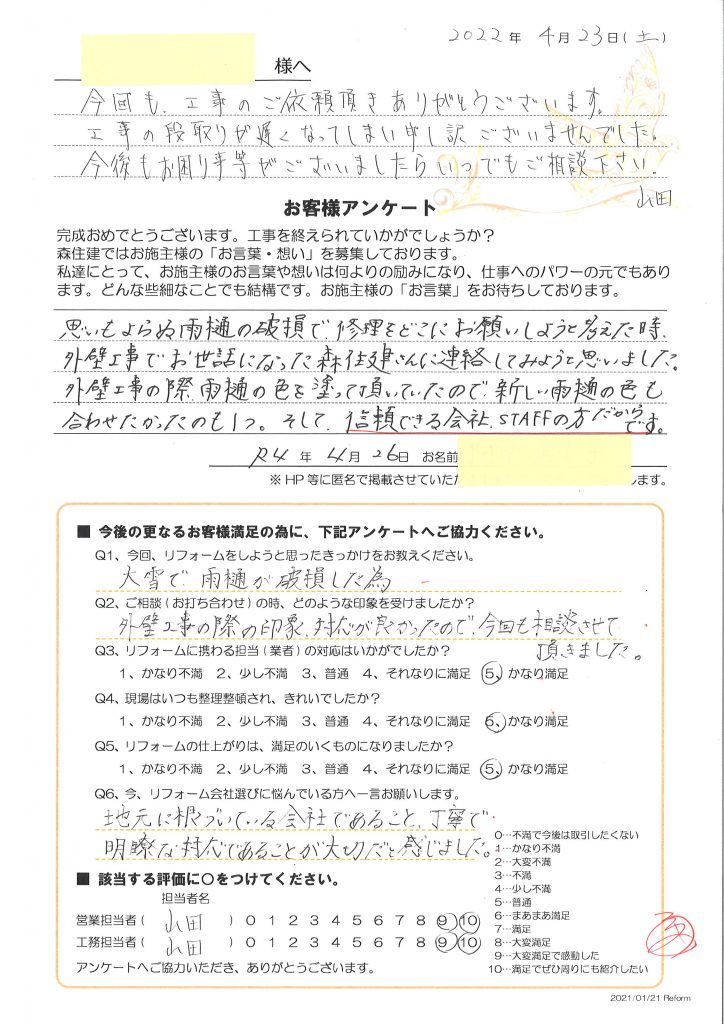 2022年 4月 23日(土)
様へ
今回も、工事のご依頼頂きありがとうございます。
工事の段取りが遅くなってしまい申し訳ございませんでした。
今後もお困り事等がございましたらいつでもご相談下さい。
山田
お客様アンケート
完成おめでとうございます。工事を終えられていかがでしょうか?
森住建ではお施主様の「お言葉・想い」を募集しております。
私達にとって、お施主様のお言葉や想いは何よりの励みになり、仕事へのパワーの元でもあり
ます。どんな些細なことでも結構です。お施主様の「お言葉」をお待ちしております。
思いもよらぬ雨樋の破損で、修理をどこにお願いしようと考えた時、
外壁工事でお世話になった森住建さんに連絡してみようと思いました。
外壁工事の際、雨樋の色を塗って頂いていたので、新しい雨樋の色も
合わせたかったのも1つ。そして、信頼できる会社、STAFFの方だからです。
R4 年 4月 26日 お名前
※HP等に匿名で掲載させていただ します。
■ 今後の更なるお客様満足の為に、下記アンケートへご協力ください。
Q1、今回、リフォームをしようと思ったきっかけをお教えください。
大雪で、雨樋が破損した為
Q2、ご相談(お打ち合わせ)の時、どのような印象を受けましたか?
外壁工事の際の印象、対応が良かったので、今回も相談させて
頂きました。
Q3、リフォームに携わる担当(業者)の対応はいかがでしたか?
1、かなり不満 2、少し不満 3、普通 4、それなりに満足 5、かなり満足
Q4、現場はいつも整理整頓され、きれいでしたか?
1、かなり不満 2、少し不満 3、普通 4、それなりに満足 5、かなり満足
Q5、リフォームの仕上がりは、満足のいくものになりましたか?
1、かなり不満 2、少し不満 3、普通 4、それなりに満足 5、かなり満足
Q6、今、リフォーム会社選びに悩んでいる方へ一言お願いします。
地元に根づいている会社であること、丁寧で
明瞭な対応であることが大切だと感じました。
■ 該当する評価に○をつけてください。
担当者名
営業担当者( 山田 ) 0 1 2 3 4 5 6 7 8 9 10
工務担当者( 山田 ) 0 1 2 3 4 5 6 7 8 9 10
アンケートへご協力いただき、ありがとうございます。
0…不満で今後は取引したくない
1…かなり不満
2…大変不満
3…不満
4…少し不満
5…普通
6…まあまあ満足
7…満足
8…大変満足
9…大変満足で感動した
10…満足でぜひ周りにも紹介したい
2021/01/21 Reform